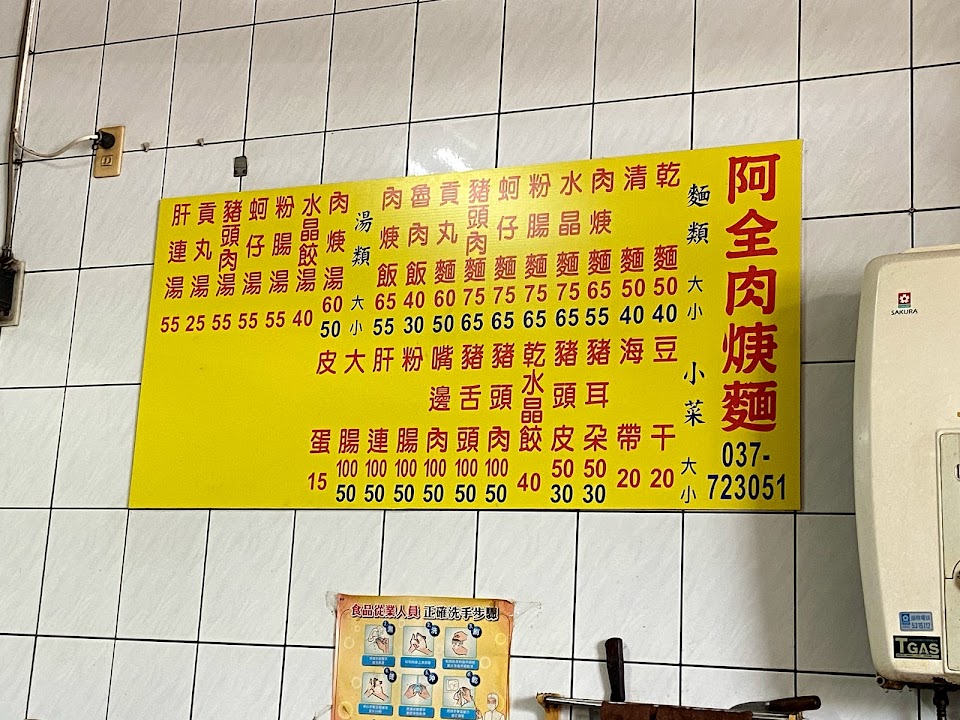 阿全肉焿麵
037-
723051
麵類 大 小
乾麵 50 40
清麵 50 40
肉焿麵 65 55
水晶麵 75 65
粉腸麵 75 65
蚵仔麵 75 65
豬頭肉麵 75 65
貢丸麵 60 50
魯肉飯 40 30
肉焿飯 65 55
湯類 大 小
肉焿湯 60 50
水晶餃湯 40
粉腸湯 55
蚵仔湯 55
豬頭肉湯 55
貢丸湯 25
肝連湯 55
小菜 大 小
豆干 20
海帶 20
豬耳朵 50 30
豬頭皮 50 30
乾水晶餃 40
豬頭肉 100 50
豬舌頭 100 50
嘴邊肉 100 50
粉腸 100 50
肝連 100 50
大腸 100 50
皮蛋 15
SAKURA
TGAS
食品從業人員 正確洗手步驟